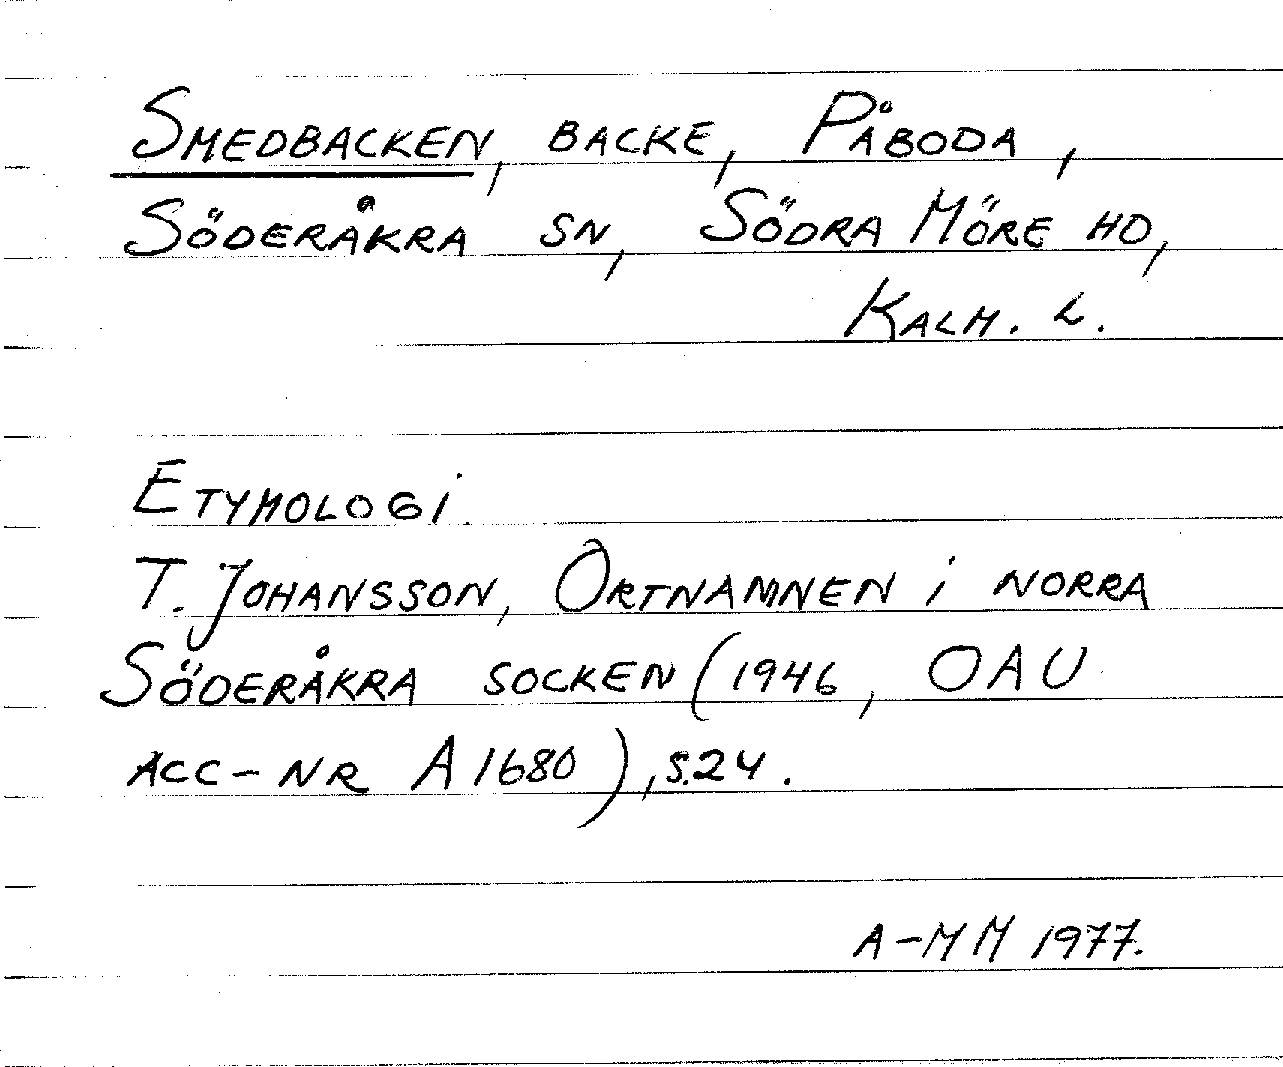 Smedbacken, backe, Påboda,
Söderåkra sn, Södra Möre hd,
Kalm. l.
Etymologi
T. Johansson, Ortnamnen i norra
Söderåkra socken (1946, OAU
acc-nr A 1680), s. 24.
A-M M 1977.